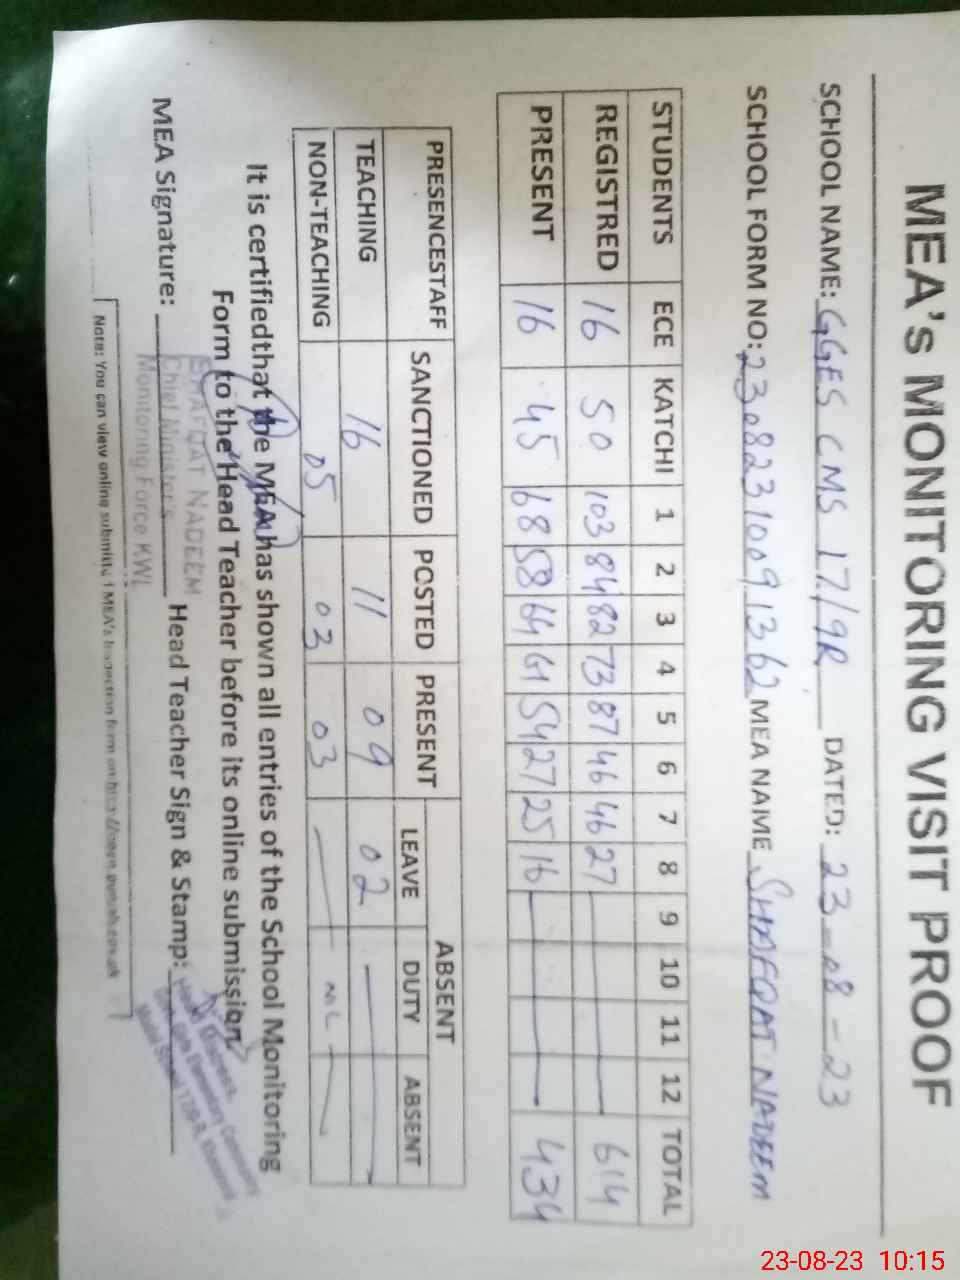 MEA's MONITORING VISIT PROOF
SCHOOL NAME: GGES CMS 17/9R DATED: 23-08-23
SCHOOL FORM NO: 23082310091362 MEA NAME SHAFQAT NADEEM
STUDENTS ECE KATCHI 1 2 3 4 5 6 7 8 9 10 11 12 TOTAL
REGISTRED 16 50 103 84 82 73 87 46 46 27 614
PRESENT 16 45 68 58 64 61 54 27 25 16 434
PRESENCESTAFF SANCTIONED POSTED PRESENT ABSENT
LEAVE DUTY ABSENT
TEACHING 16 11 09 02
NON-TEACHING 05 03 03 NIL
It is certifiedthat the MEA has shown all entries of the School Monitoring
Form to the Head Teacher before its online submission
MEA Signature: Head Teacher Sign & Stamp:
SHAFQAT NADEEM
Chief Minister's
Monitoring Force KWL
Headmistress
Govt. Girls Elementary Community
Model School 17/9-R,
Note: You can view online submitted MEA's inspection form on
23-08-23 10:15